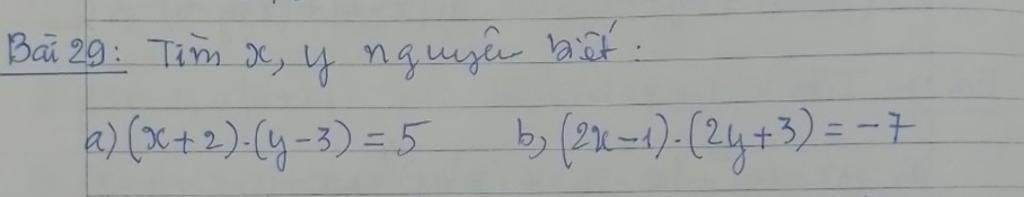 Bài 29: Tìm x, y nguyên biết:
a) (x+2).(y-3) = 5 b, (2x-1).(2y+3) = -7